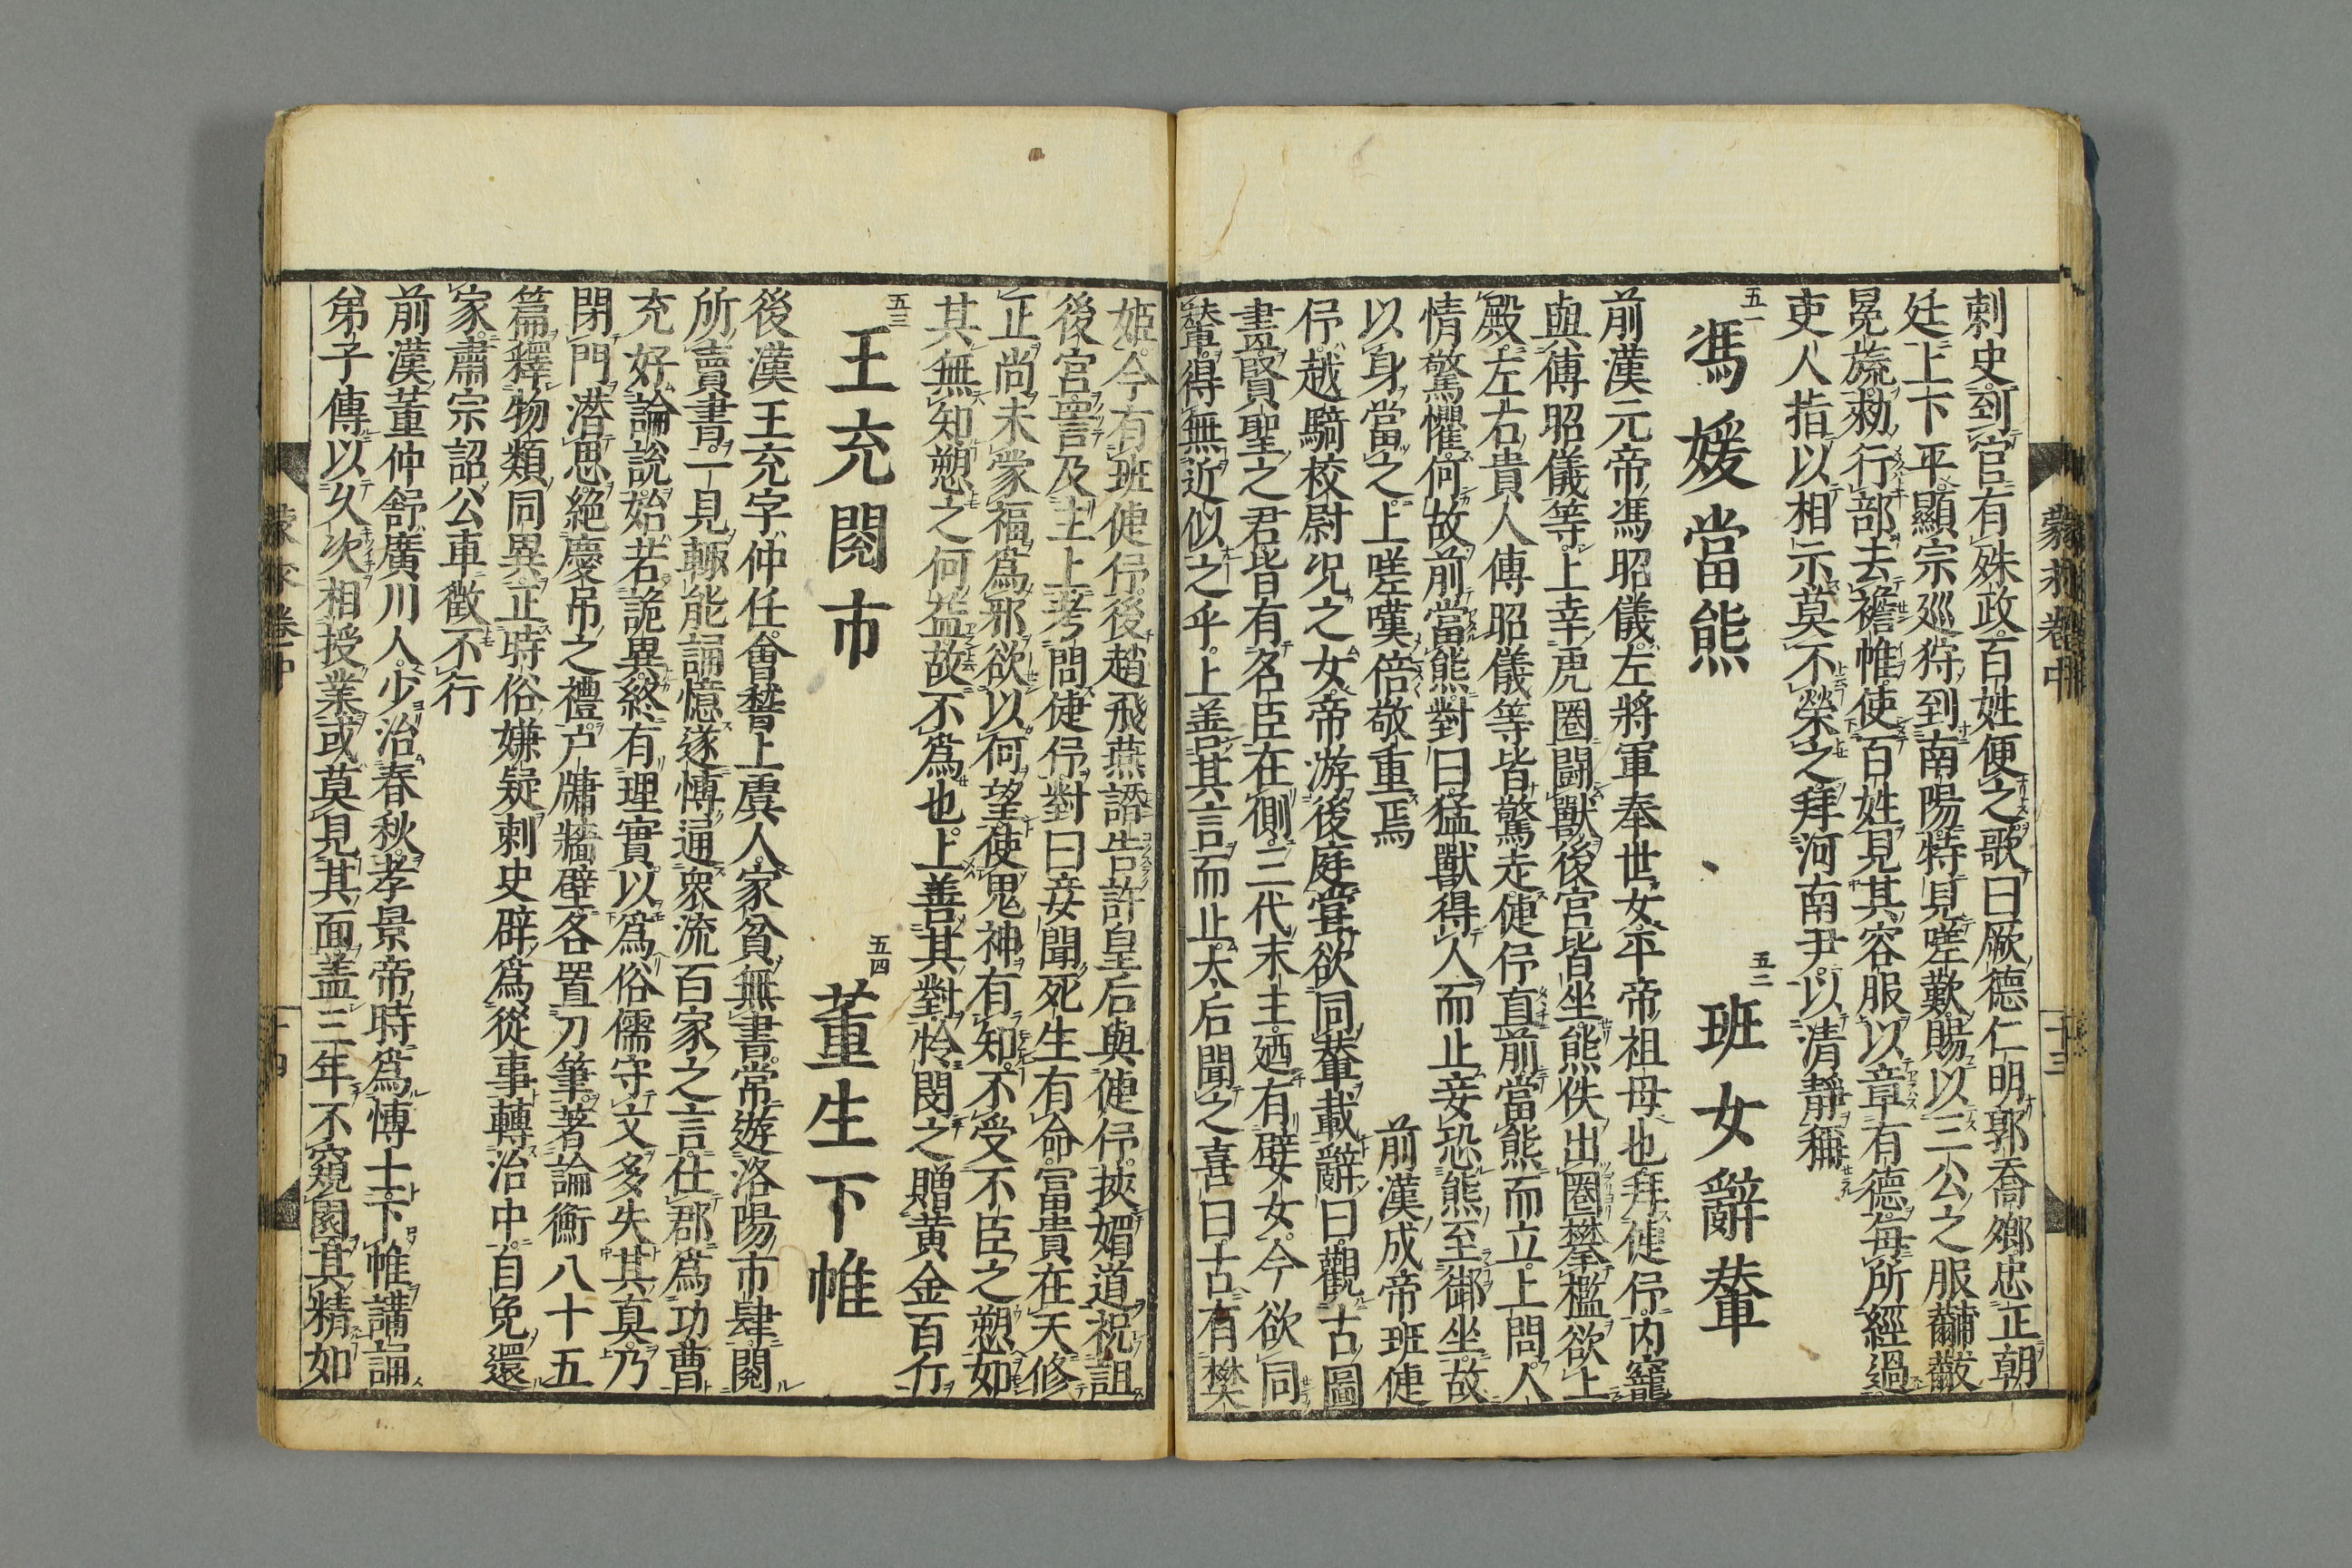 刺史到官有殊政百姓便之歌曰厥德仁明郭喬鄉忠正朝
廷上下平顯宗巡狩到南陽特見嗟歎賜以三公之服黼黻
冕旒勑行部去襜帷使百姓見其容服以章有德每所經過
吏人指以相示莫不榮之拜河南尹以清靜稱
五一 馮媛當熊 五二 班女辭輦
前漢元帝馮昭儀左將軍奉世女平帝祖母也拜倢伃内寵
與傅昭儀等上幸虎圈鬪獸後宮皆坐熊佚出圈攀檻欲上
殿左右貴人傅昭儀等皆驚走倢伃直前當熊而立上問人
情驚懼何故前當熊對曰猛獸得人而止妾恐熊至御坐故
以身當之上嗟嘆倍敬重焉 前漢成帝班倢
伃越騎校尉况之女帝游後庭甞欲同輦載辭曰觀古圖
畫賢聖之君皆有名臣在側三代末主廼有嬖女今欲同
輦得無近似之乎上善其言而止太后聞之喜曰古有樊
姫今有班倢伃後趙飛燕譖告許皇后與倢伃挾媚道祝詛
後宮詈言及主上考問倢伃對曰妾聞死生有命富貴在天修
正尚未蒙福爲邪欲以何望使鬼神有知不受不臣之愬如
其無知愬之何益故不爲也上善其對憐閔之贈黄金百斤
五三 王充閱市 五四 董生下帷
後漢王充字仲任會稽上虞人家貧無書常遊洛陽市肆閱
所賣書一見輙能誦憶遂博通衆流百家之言仕郡爲功曹
充好論說始若詭異終有理實以爲俗儒守文多失其真乃
閉門潜思絶慶吊之禮戸牖牆壁各置刀筆著論衡八十五
篇釋物類同異正時俗嫌疑刺史辟爲從事轉治中自免還
家肅宗詔公車徵不行
前漢董仲舒廣川人少治春秋孝景帝時爲博士下帷講誦
弟子傳以久次相授業或莫見其面盖三年不窺園其精如
蒙求卷中 十三
蒙求卷中 十四